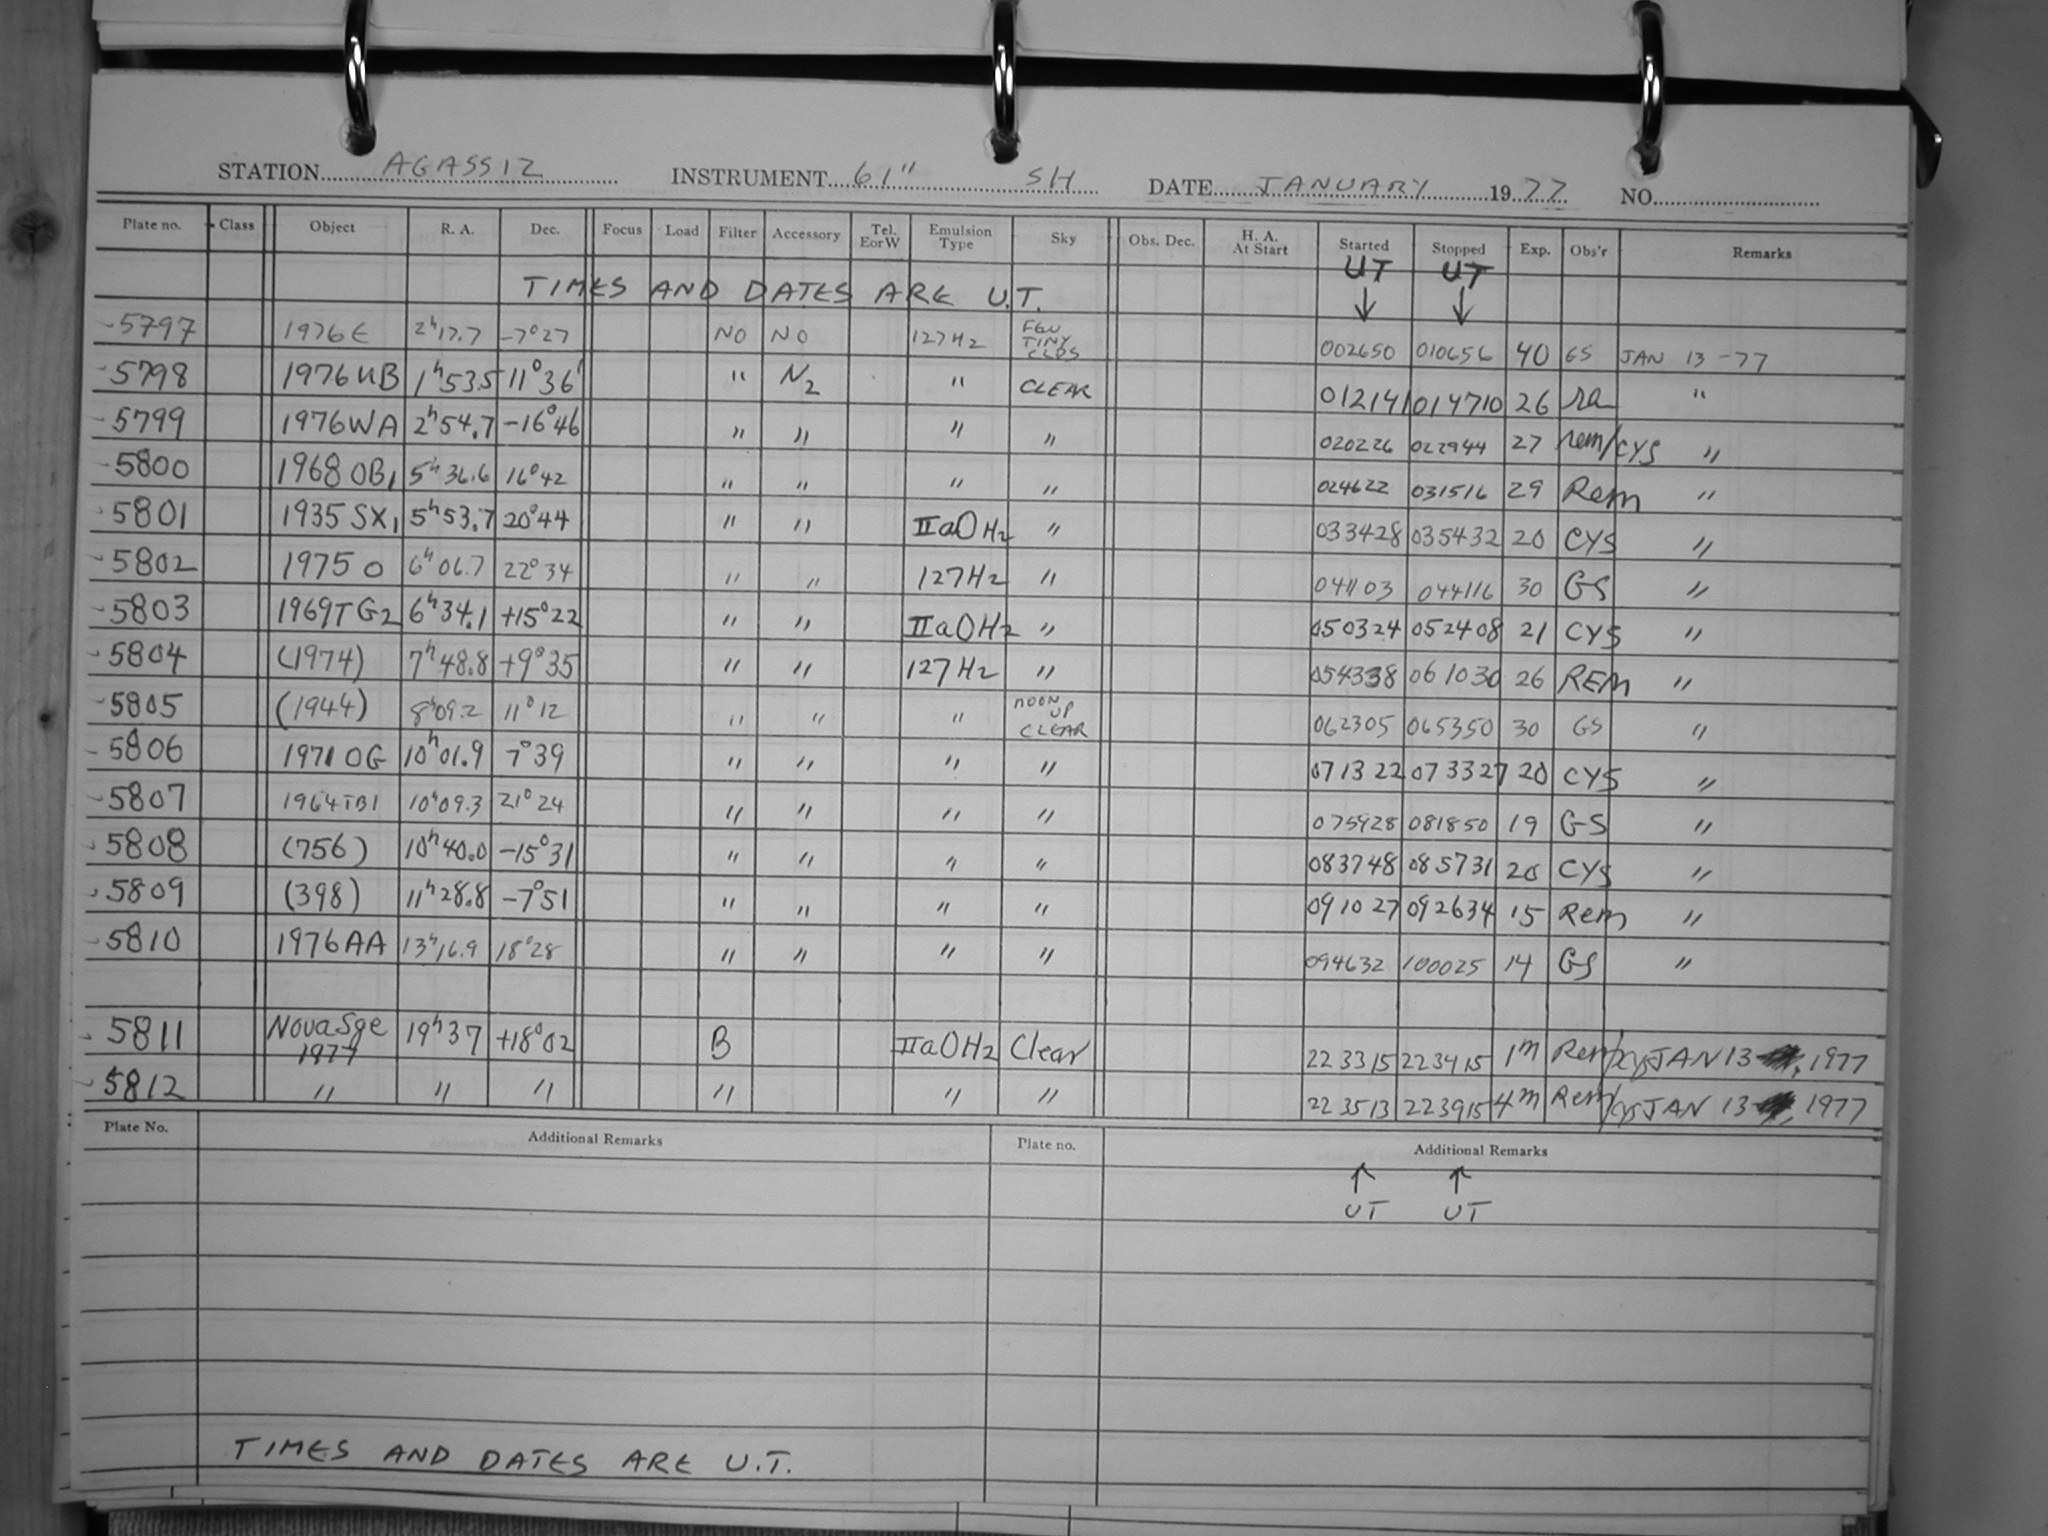 STATION AGASSIZ INSTRUMENT 61" SH DATE JANUARY 1977 NO.
Plate no. Class Object R. A. Dec. Focus Load Filter Accessory Tel. EorW Emulsion Type Sky Obs. Dec. H. A. At Start Started Stopped Exp. Obs'r Remarks
UT UT
TIMES AND DATES ARE U.T.
5797 1976E 2h17.7 -7°27 NO NO 127H2 FEW TINY CLDS 002650 010656 40 GS JAN 13-77
5798 1976UB 1h53.5 11°36' " N2 " CLEAR 012141 014710 26 ra "
5799 1976WA 2h54.7 -16°46 " " " " 020226 022944 27 rem/CYS "
5800 1968 OB1 5h36.6 16°42 " " " " 024622 031516 29 Rem "
5801 1935 SX1 5h53.7 20°44 " " IIaOH2 " 033428 035432 20 CYS "
5802 1975 O 6h06.7 22°34 " " 127H2 " 041103 044116 30 GS "
5803 1969TG2 6h34.1 +15°22 " " IIaOH2 " 050324 052408 21 CYS "
5804 (1974) 7h48.8 +9°35 " " 127H2 " 054338 061030 26 REM "
5805 (1944) 8h09.2 11°12 " " " MOON UP CLEAR 062305 065350 30 GS "
5806 1971 OG 10h01.9 7°39 " " " " 071322 073327 20 CYS "
5807 1964TB1 10h09.3 21°24 " " " " 075928 081850 19 GS "
5808 (756) 10h40.0 -15°31 " " " " 083748 085731 20 CYS "
5809 (398) 11h28.8 -7°51 " " " " 091027 092634 15 Rem "
5810 1976AA 13h16.9 18°28 " " " " 094632 100025 14 GS "
5811 Nova Sge 1977 19h37 +18°02 B IIaOH2 Clear 223315 223415 1m Rem/cys JAN 13, 1977
5812 " " " " " " 223513 223915 4m Rem/cys JAN 13, 1977
Plate No. Additional Remarks Plate no. Additional Remarks
UT UT
TIMES AND DATES ARE U.T.